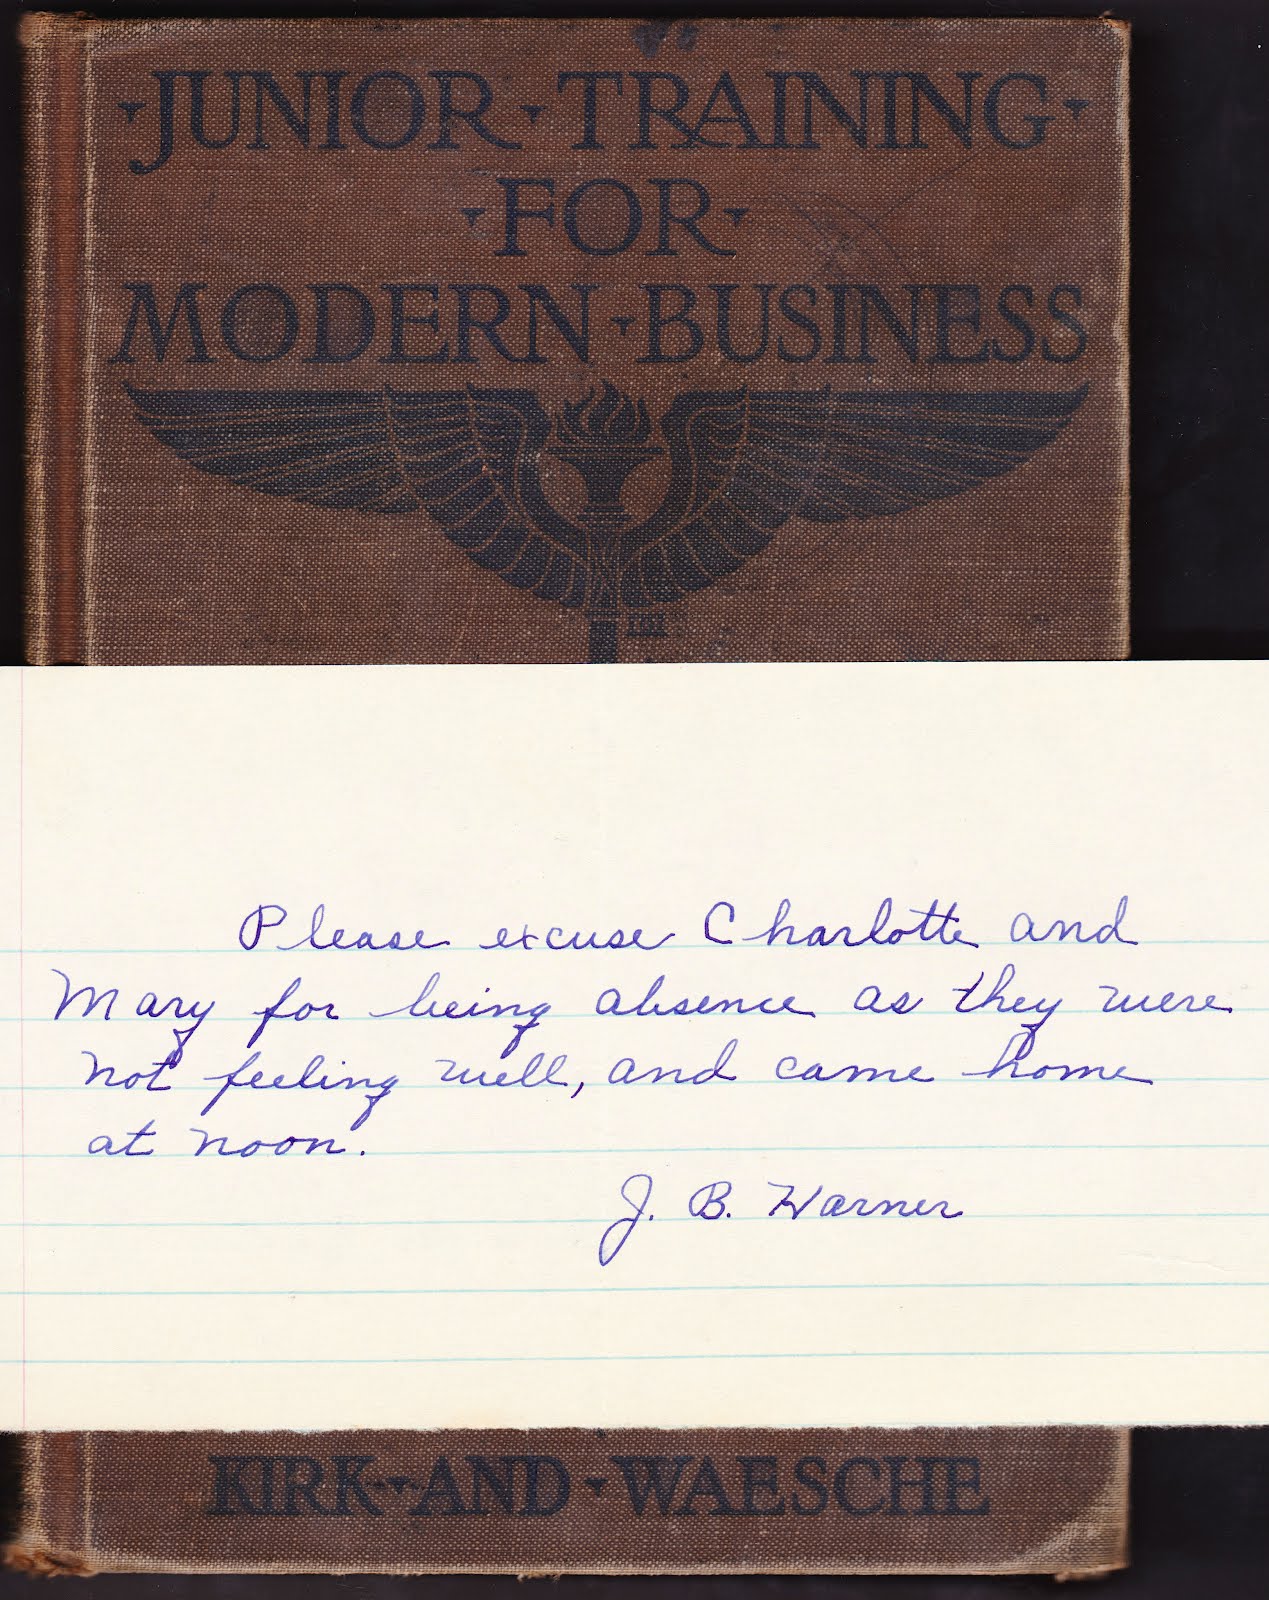 JUNIOR TRAINING
FOR
MODERN BUSINESS
Please excuse Charlotte and
Mary for being absence as they were
not feeling well, and came home
at noon.
J. B. Warner
KIRK AND WAESCHE